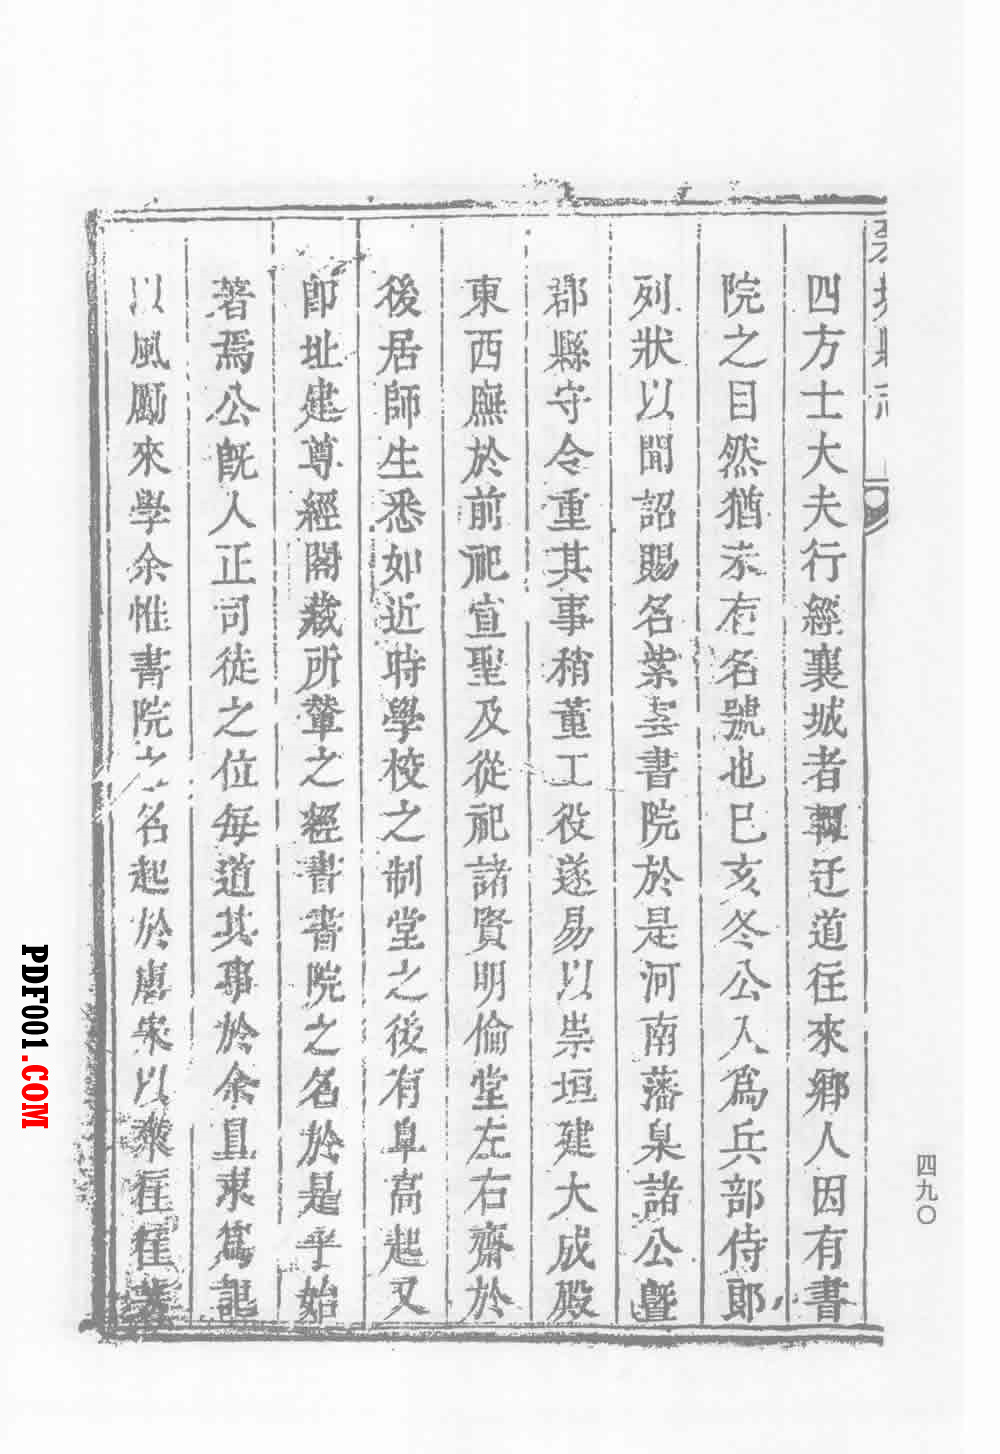 四方士大夫行經襄城者輒迂道往來鄉人因有書
院之目然猶未有名號也已亥冬公入為兵部侍郎
列狀以聞詔賜名紫雲書院於是河南藩臬諸公曁
郡縣守令重其事稍董工役遂易以崇垣建大成殿
東西廡於前祀宣聖及從祀諸賢明倫堂左右齋於
後居師生悉如近時學校之制堂之後有阜高起又
卽址建尊經閣藏所輦之經書書院之名於是乎始
著焉公旣人正司徒之位每道其事於余且求爲記
以風勵來學余惟書院之名起於唐宋以來往往
四九〇
PDF001.COM